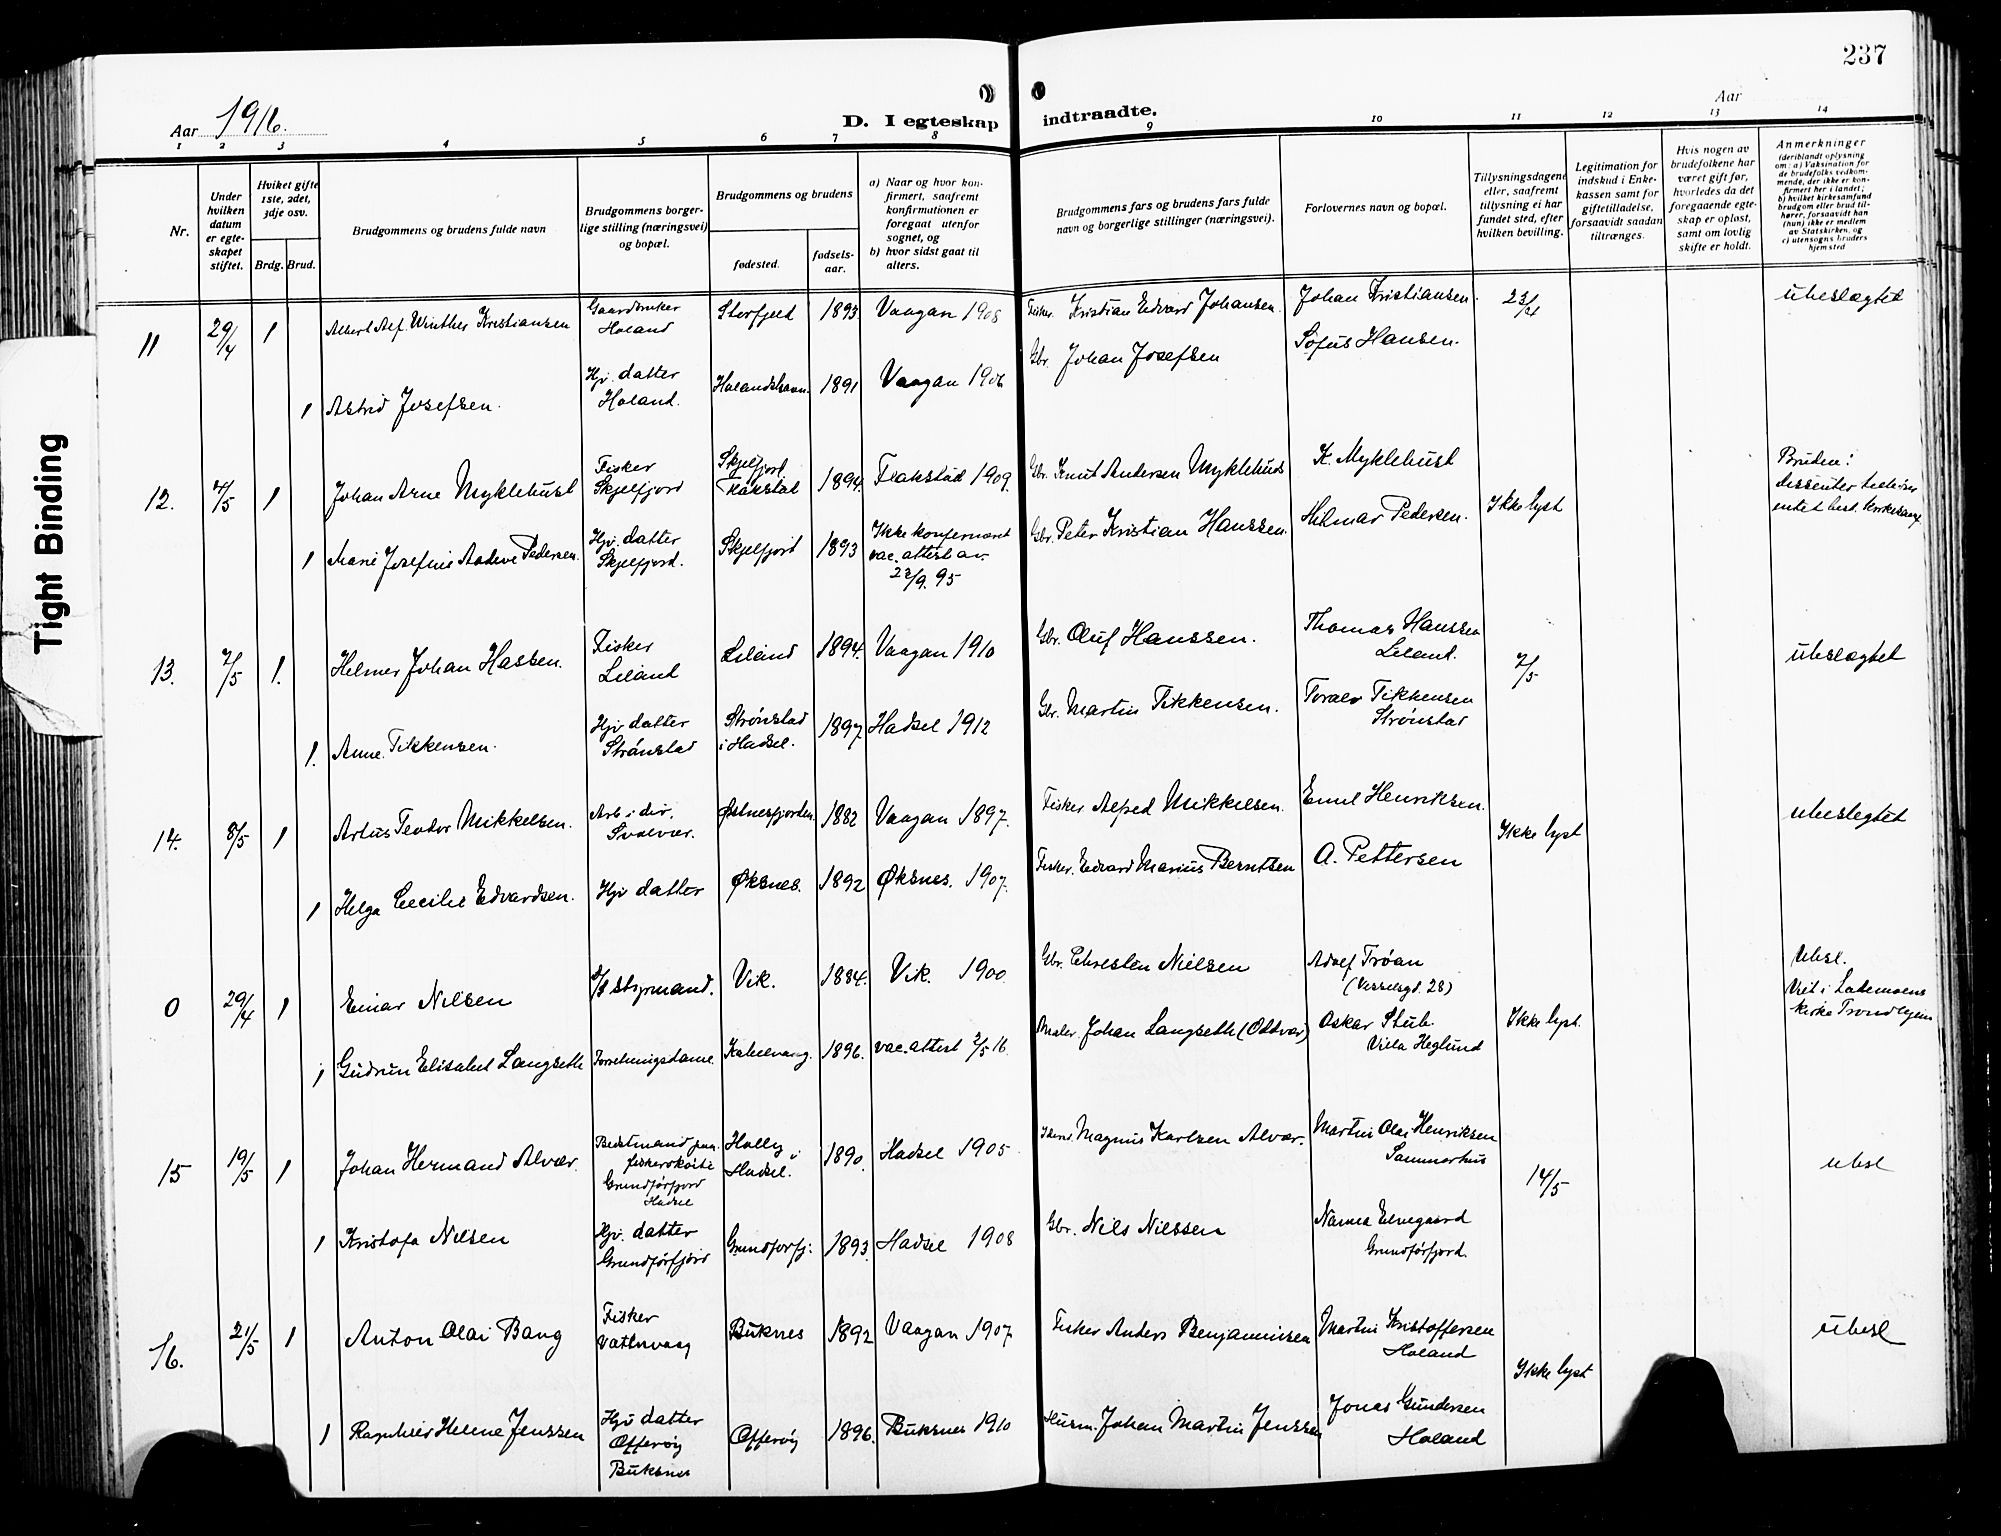 Tight Binding
237
Aar 1916.
D. I egteskap indtraadte.
Aar
1 2 3 4 5 6 7 8 9 10 11 12 13 14
Nr.
Under hvilken datum er egteskapet stiftet.
Hviket gifte 1ste, 2det, 3dje osv.
Brdg. Brud.
Brudgommens og brudens fulde navn
Brudgommens borgerlige stilling (næringsvei) og bopæl.
Brudgommens og brudens
fødested.
fødselsaar.
a) Naar og hvor konfirmert, saafremt konfirmationen er foregaat utenfor sognet, og
b) hvor sidst gaat til alters.
Brudgommens fars og brudens fars fulde navn og borgerlige stillinger (næringsvei).
Forlovernes navn og bopæl.
Tillysningsdagene eller, saafremt tillysning ei har fundet sted, efter hvilken bevilling.
Legitimation for indskud i Enkekassen samt for giftetilladelse, forsaavidt saadan tiltrænges.
Hvis nogen av brudefolkene har været gift før, hvorledes da det foregaaende egteskap er opløst, samt om lovlig skifte er holdt.
Anmerkninger
(deriblandt oplysning om: a) Vaksination for de brudefolks vedkommende, der ikke er konfirmert her i landet; b) hvilket kirkesamfund brudgom eller brud tilhører, forsaavidt han (hun) ikke er medlem av Statskirken, og c) utensogns bruders hjemsted
11 29/4 1 Albert Alf. Winther Kristiansen Gaardbruker Holand Storfjeld 1893 Vaagan 1908 Fisker Kristian Edvard Johansen. Johan Kristiansen. 23/4 ubeslægtet
1 Astrid Josefsen. Hjv. datter Holand. Holandshavn. 1891 Vaagan 1906 Gbr. Johan Josefsen Sofus Hansen.
12. 4/5 1 Johan Arne Myklehust Fisker Skjelfjord Skjelfjort Flakstat 1894. Flakstad 1909. Gbr. Knut Andersen Myklehust K. Myklehust Ikke lyst Bruden: dissenter
1 Marie Josefine Pedersen. Hjv. datter Skjelfjord. Skjelfjort 1893 Ikke konfermeret vac. attest av 22/9. 95 Gbr. Peter Kristian Hanssen. Hilmar Pedersen.
13. 7/5 1. Helmer Johan Hassen. Fisker Liland Liland 1894. Vaagan 1910 Gbr. Oluf Hanssen. Thomas Hanssen Liland. 7/5 ubeslægtet
1. Anne Tikkensen. Hjv datter Strønstad Strønstad i Hadsel. 1897 Hadsel 1912 Gbr. Martin Tikkensen. Toralv Tikkensen Strønstad
14. 8/5 1 Artus Teodor Mikkelsen. Arb i div. Svolvær. Østnesfjorden. 1882 Vaagan 1897. Fisker Alfred Mikkelsen. Emil Henriksen. Ikke lyst ubeslegtet
1 Helga Cecilie Edvardsen. Hjv datter Øksnes. 1892 Øksnes. 1907. Fisker. Edvard Marius Berntsen A. Pettersen
0 29/4 1 Einar Nilsen styrmand. Vik. 1884. Vik. 1900 Gbr. Chresten Nielsen Adolf Trøan Ikke lyst. Ubsl. Viet i Lademoens kirke Trondhjem
1 Gudrun Elisabet Langseth Forretningsdame. Kabelvaag. 1896. vac. attest 2/5 16. Maler Johan Langseth (Oddvar) Oskar Stub. Heglund
15 19/5 1 Johan Hermand Alvær. Bestmand paa fiskeskøite Grundførfjord Hadsel Holley i Hadsel. 1890. Hadsel 1905 Magnus Karlsen Alvær. Martin Olai Henriksen Sommarhus 14/5 ubsl
1 Kristofa Nilsen Hjv. datter Grundførfjord Grundforfj: 1893. Hadsel 1908 Gbr. Nils Nilssen Nanna Elvegaard Grundførfjord.
16. 21/5 1 Anton Olai Bang Fisker Vattervaag Buknes 1892 Vaagan 1907 Fisker Anders Benjaminsen Martin Kristoffersen Holand Ikke lyst ubesl
1 Ragnhild Helene Jenssen Hjv datter Offersøy Buksnes Offersøy 1896. Buksnes 1910 Husm. Johan Martin Jenssen Jonas Gundersen Holand